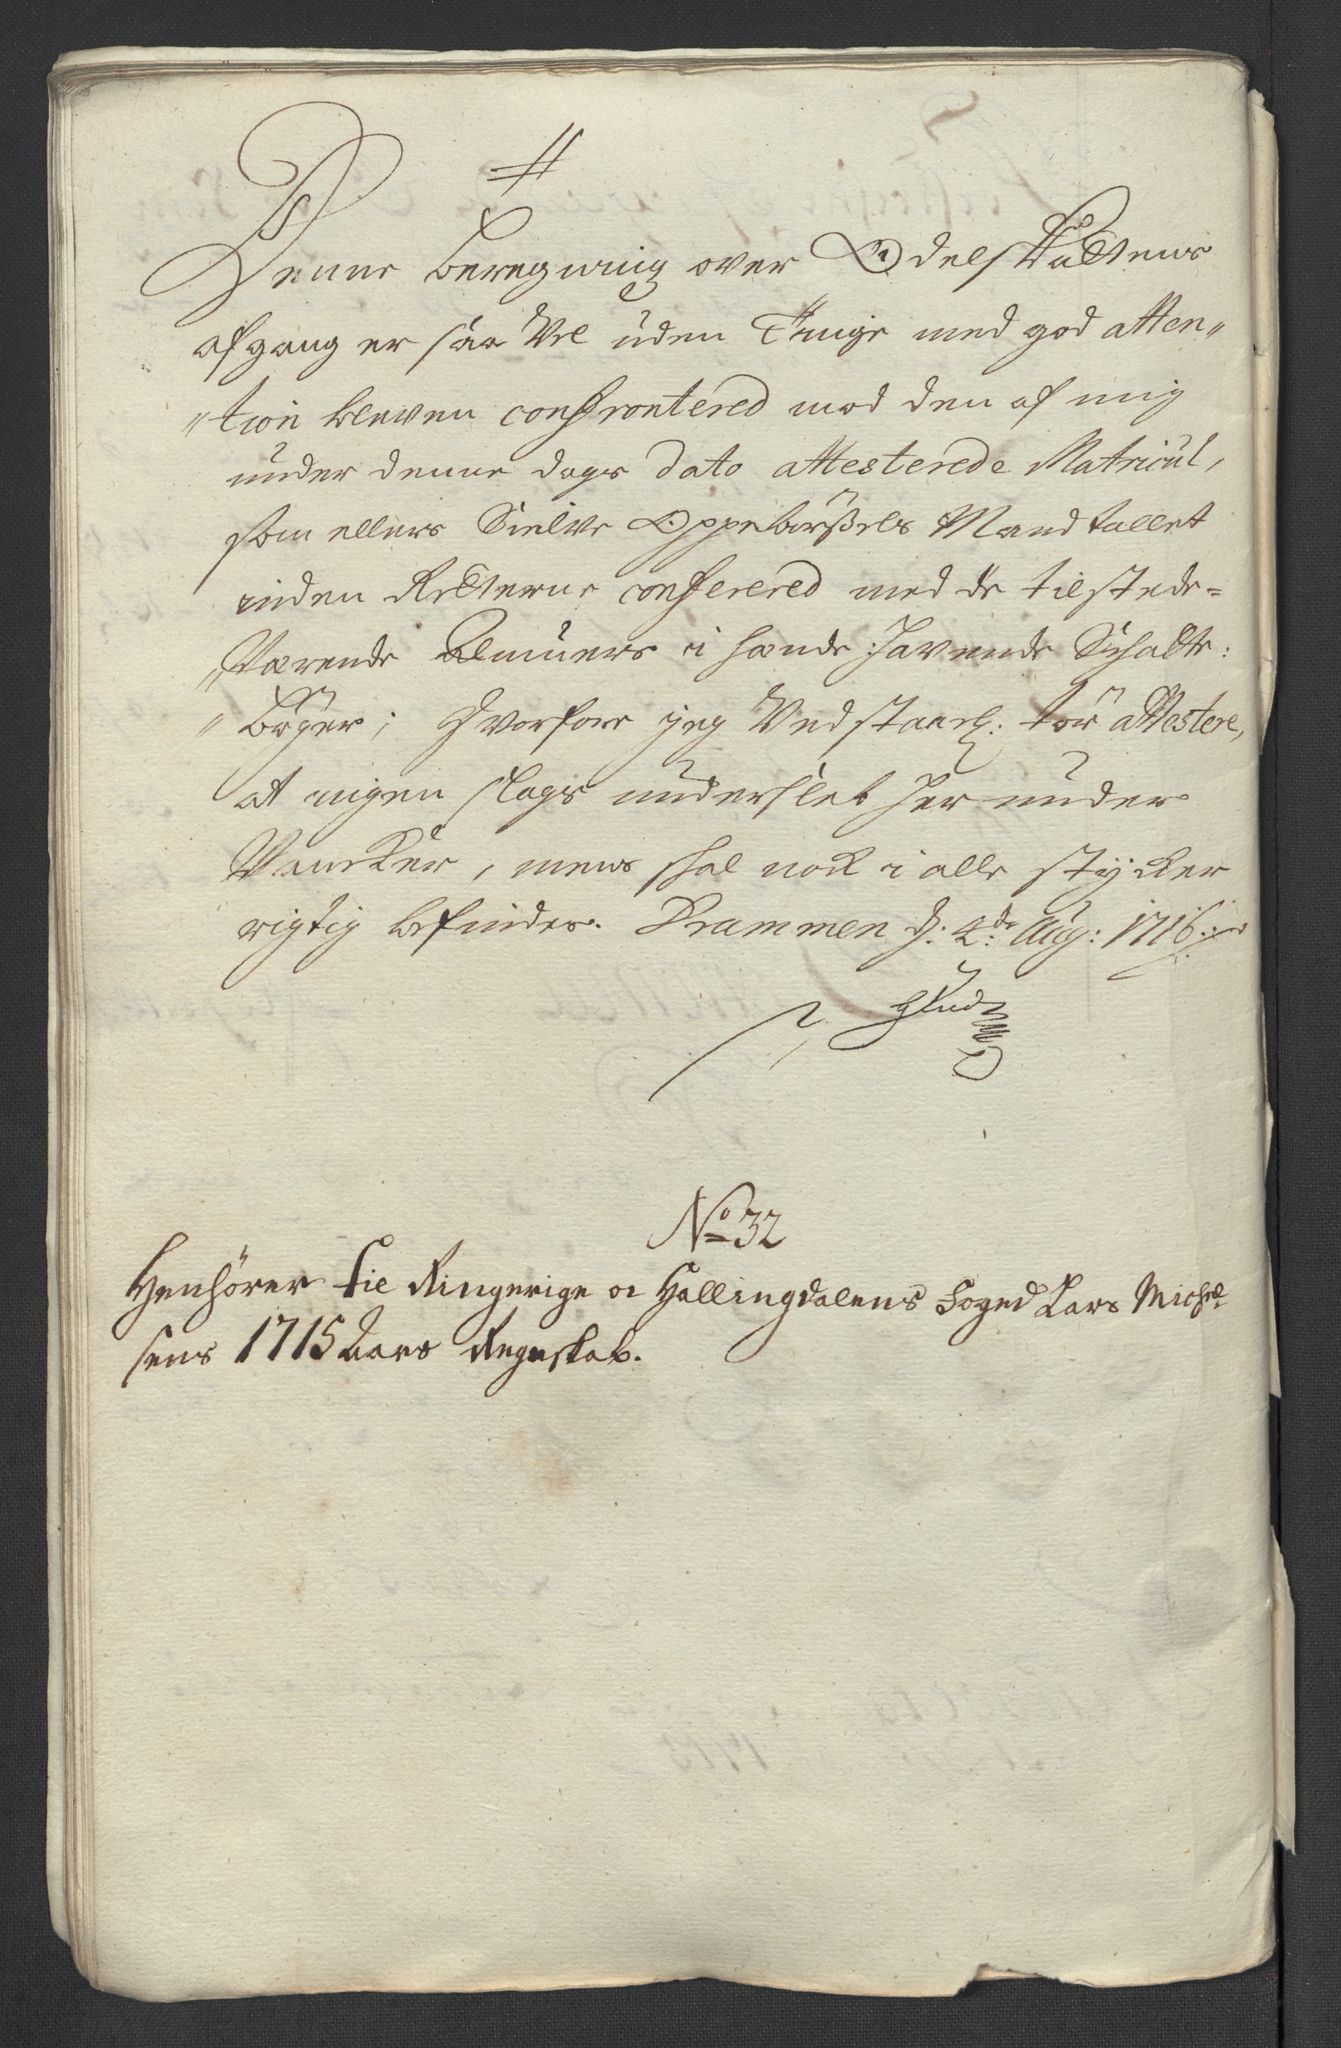 Denne beregning over Odelskattens
afgang er saa Vel uden Tinge med god atten„
„tion bleven confrontered mod den af mig
under denne dags dato attesterede Matricul,
som ellers Sielve Oppebørßels Mandtallet
inden Rætterne conferered med de tilstede=
„Værende Almuers i hænde havende Schatte:
„bøger; hvorfore jeg Vedstaael: tør attestere,
at ingen slags underslet her under
Vancker, mens skal nock i alle stycker
rigtig befindes. Drammen d: 4de Aug: 1716
No 32
Henhører til Ringerige oc Hallingdalens Foged Lars Michel
sens 1715 Aars Regnskab.